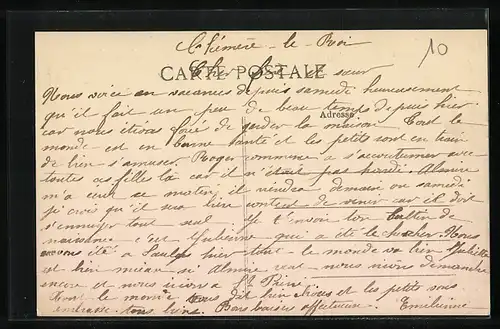 Chémeré - le - Roi
10
Cher et sœur
CARTE POSTALE
Nous voici en vacances depuis samedi heureusement
qu'il fait un peu de beau temps depuis hier
Adresse
car nous étions forcé de garder la maison Tout le
monde est en bonne santé et les petits sont en train
de bien s'amuser. Roger commence a s'accoutumer avec
toutes ces filles là car il n'était pas hardi.
m'a écrit ce matin il viendra demain ou samedi
je crois qu'il sera bien content de venir car il doit
s'ennuyer tout seul. Je t'envoie ton bulletin de
naissance c'est qui a été le chercher. Nous
avons été a Saulges hier tout le monde va bien Juliette
est bien mieux si veut nous irons dimanche
encore et nous irons a
tout le monde vous dit bien des choses et les petits vous
embrasse tous bien. Bons baisers affectueux. Emilienne